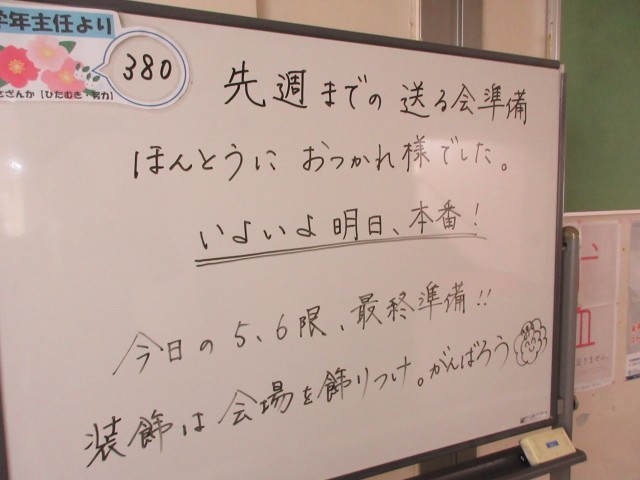 学年主任より
さざんか【ひたむき・努力】
380
先週までの 送る会準備
ほんとうに おつかれ様でした。
いよいよ 明日、本番!
今日の 5、6限、最終準備!!
装飾は 会場を飾りつけ。がんばろう